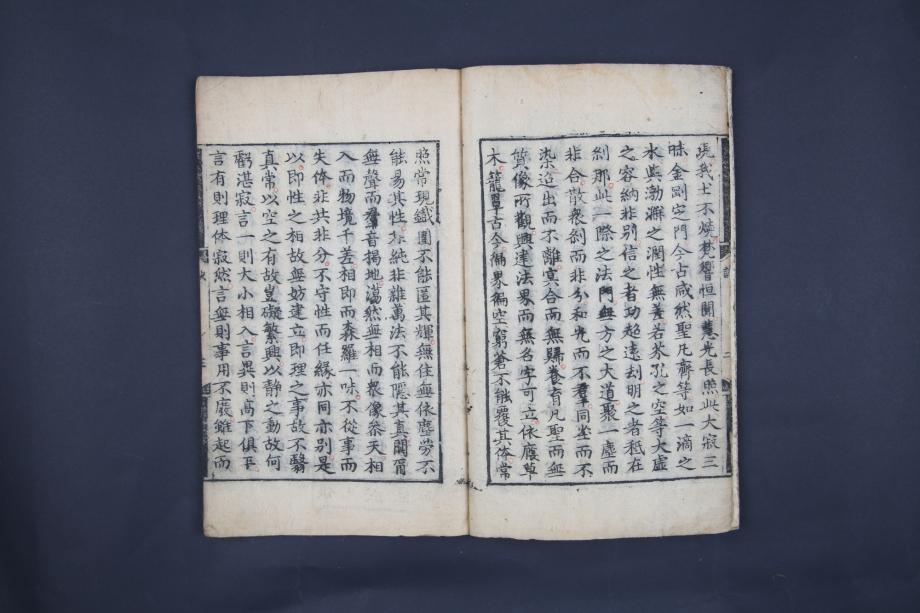 境我土不燒梵響恒聞慧光長照此大寂三
昧金剛定門今古咸然聖凡齊等如一滴之
水與渤澥之潤性無差若芥孔之空等大虛
之容納非別信之者功超遠刼明之者秖在
剎那此一際之法門無方之大道聚一塵而
非合散衆剎而非分和光而不羣同塵而不
染迢出而不離冥合而無歸養育凡聖而無
質像可觀興建法界而無名字可立依廕草
木籠罩古今徧界徧空穹蒼不能覆其体常
照常現鐵圍不能匿其輝無住無依塵勞不
能易其性非純非雜萬法不能隱其真闃爾
無聲而羣音揭地蕩然無相而衆像叅天相
入而物境千差相即而森羅一味不從事而
失体非共非分不守性而任緣亦同亦别是
以即性之相故無妨建立即理之事故不翳
真常以空之有故豈礙繁興以靜之動故何
虧湛寂言一則大小相入言異則高下俱平
言有則理体寂然言無則事用不廢雖起而